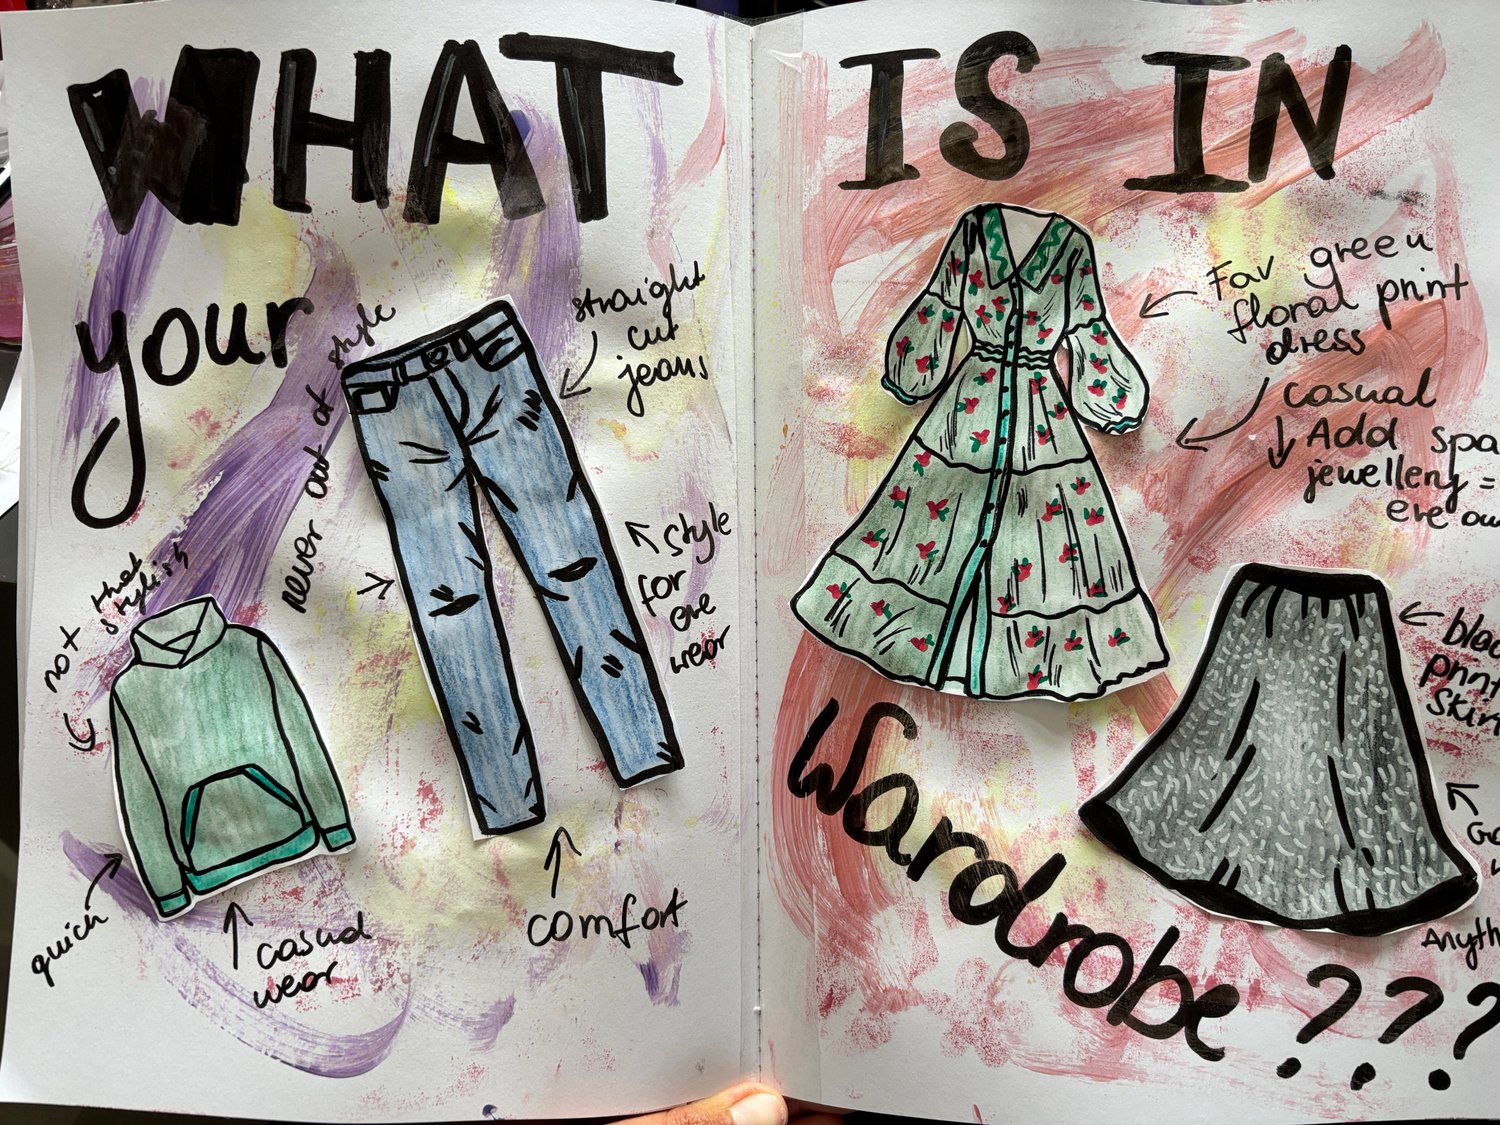 WHAT
IS IN
your
Wardrobe???
never out of style
straight
cut
jeans
style
for
eve
wear
comfort
not that
stylish
quick
casual
wear
Fav green
floral print
dress
casual
Add
jewellery =
eve
print